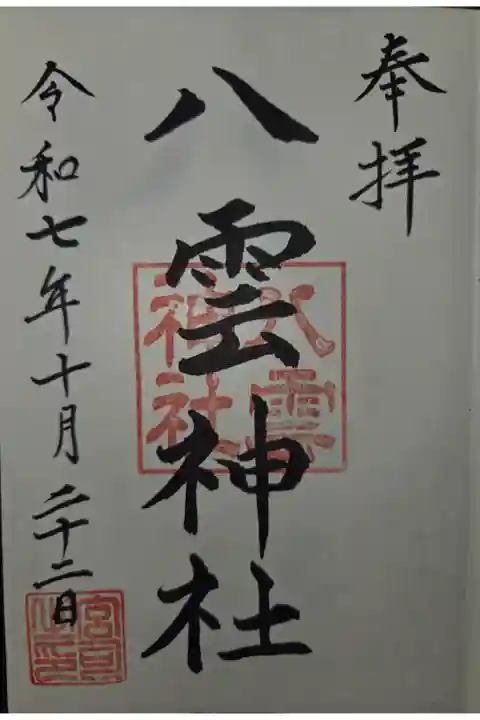 奉拝
八雲神社
八雲神社
令和七年十月二十二日
宮司之印